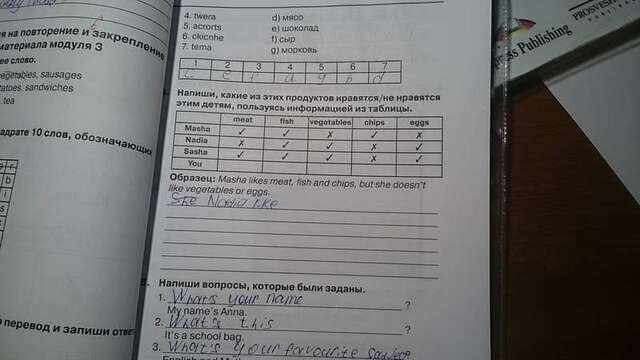 я на повторение и закрепление
материала модуля 3
ее слово.
vegetables, sausages
tatoes, sandwiches
, tea
адрате 10 слов, обозначающих
о перевод и запиши отве
4. twera d) мясо
5. acrorts e) шоколад
6. ckicnhe f) сыр
7. tema g) морковь
1 2 3 4 5 6 7
Напиши, какие из этих продуктов нравятся/не нравятся
этим детям, пользуясь информацией из таблицы.
meat fish vegetables chips eggs
Masha ✓ ✓ ✗ ✓ ✗
Nadia ✗ ✓ ✓ ✗ ✓
Sasha ✓ ✓ ✓ ✗ ✓
You
Образец: Masha likes meat, fish and chips, but she doesn't
like vegetables or eggs.
She Nadia like
Напиши вопросы, которые были заданы.
1. What's your name ?
My name's Anna.
2. What's this ?
It's a school bag.
3. What's your favourite
English and
press Publishing
PROSVE